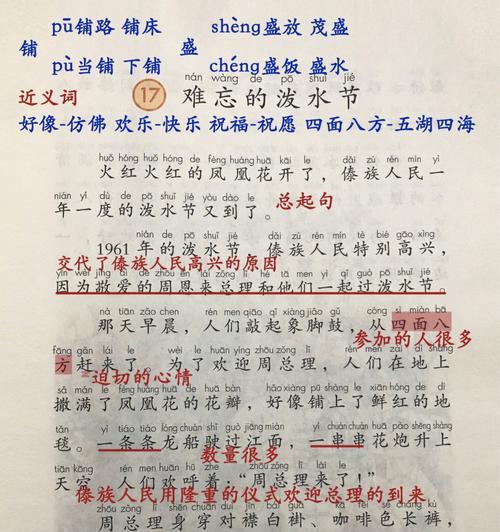 pū铺路 铺床 shèng盛放 茂盛
铺 盛
pù当铺 下铺 chéng盛饭 盛水
nán wàng de pō shuǐ jié
近义词 17 难忘的泼水节
好像-仿佛 欢乐-快乐 祝福-祝愿 四面八方-五湖四海
huǒ hóng huǒ hóng de fèng huáng huā kāi le dǎi zú rén mín yì
火红火红的凤凰花开了，傣族人民一
nián yí dù de pō shuǐ jié yòu dào le
年一度的泼水节又到了。 总起句
nián de pō shuǐ jié dǎi zú rén mín tè bié gāo xìng
1961年的泼水节，傣族人民特别高兴，
交代了傣族人民高兴的原因
yīn wèi jìng ài de zhōu ēn lái zǒng lǐ hé tā men yì qǐ guò pō shuǐ jié
因为敬爱的周恩来总理和他们一起过泼水节。
nà tiān zǎo chén rén men qiāo qǐ xiàng jiǎo gǔ cóng sì miàn bā
那天早晨，人们敲起象脚鼓，从四面八
参加的人很多
fāng gǎn lái le wèi le huān yíng zhōu zǒng lǐ rén men zài dì shàng
方赶来了。为了欢迎周总理，人们在地上
迫切的心情
sǎ mǎn le fèng huáng huā de huā bàn hǎo xiàng pū shàng le xiān hóng de dì
撒满了凤凰花的花瓣，好像铺上了鲜红的地
tǎn yì tiáo tiáo lóng chuán shǐ guò jiāng miàn yí chuàn chuàn huā pào shēng shàng
毯。一条条龙船驶过江面，一串串花炮升上
数量很多
tiān kōng rén men huān hū zhe zhōu zǒng lǐ lái le
天空。人们欢呼着：“周总理来了！”
傣族人民用隆重的仪式欢迎总理的到来
周总理身穿对襟白褂、咖啡色长裤，